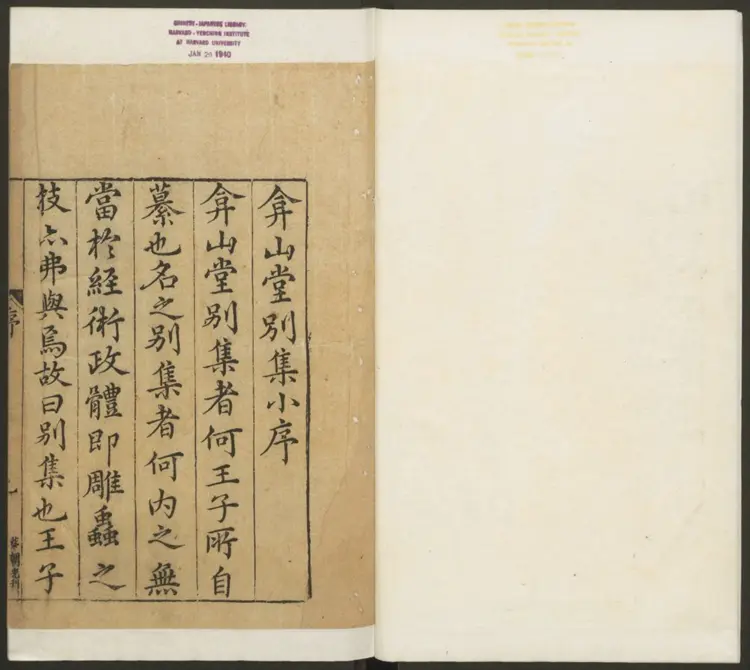 CHINESE-JAPANESE LIBRARY
HARVARD-YENCHING INSTITUTE
AT HARVARD UNIVERSITY
JAN 26 1940
弇山堂別集小序
弇山堂別集者何王子所自
纂也名之別集者何內之無
當於經術政體即雕蟲之
技亦弗與焉故曰別集也王子
序
一